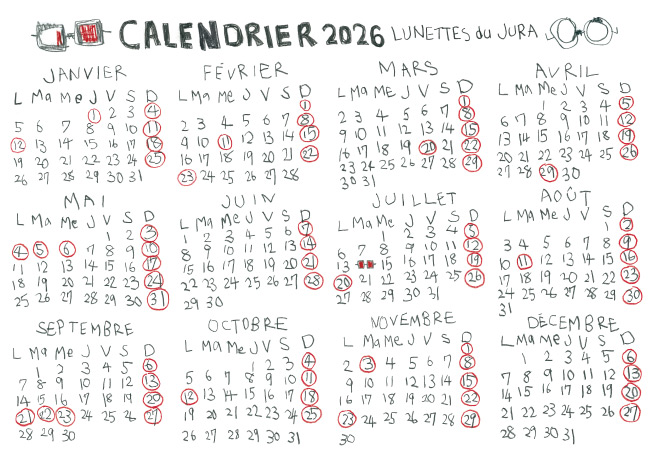 CALENDRIER 2026 LUNETTES du JURA
JANVIER
L Ma Me J V S D
1 2 3 4
5 6 7 8 9 10 11
12 13 14 15 16 17 18
19 20 21 22 23 24 25
26 27 28 29 30 31
FÉVRIER
L Ma Me J V S D
1
2 3 4 5 6 7 8
9 10 11 12 13 14 15
16 17 18 19 20 21 22
23 24 25 26 27 28
MARS
L Ma Me J V S D
1
2 3 4 5 6 7 8
9 10 11 12 13 14 15
16 17 18 19 20 21 22
23 24 25 26 27 28 29
30 31
AVRIL
L Ma Me J V S D
1 2 3 4 5
6 7 8 9 10 11 12
13 14 15 16 17 18 19
20 21 22 23 24 25 26
27 28 29 30
MAI
L Ma Me J V S D
1 2 3
4 5 6 7 8 9 10
11 12 13 14 15 16 17
18 19 20 21 22 23 24
25 26 27 28 29 30 31
JUIN
L Ma Me J V S D
1 2 3 4 5 6 7
8 9 10 11 12 13 14
15 16 17 18 19 20 21
22 23 24 25 26 27 28
29 30
JUILLET
L Ma Me J V S D
1 2 3 4 5
6 7 8 9 10 11 12
13 15 16 17 18 19
20 21 22 23 24 25 26
27 28 29 30 31
AOÛT
L Ma Me J V S D
1 2
3 4 5 6 7 8 9
10 11 12 13 14 15 16
17 18 19 20 21 22 23
24 25 26 27 28 29 30
31
SEPTEMBRE
L Ma Me J V S D
1 2 3 4 5 6
7 8 9 10 11 12 13
14 15 16 17 18 19 20
21 22 23 24 25 26 27
28 29 30
OCTOBRE
L Ma Me J V S D
1 2 3 4
5 6 7 8 9 10 11
12 13 14 15 16 17 18
19 20 21 22 23 24 25
26 27 28 29 30 31
NOVEMBRE
L Ma Me J V S D
1
2 3 4 5 6 7 8
9 10 11 12 13 14 15
16 17 18 19 20 21 22
23 24 25 26 27 28 29
30
DÉCEMBRE
L Ma Me J V S D
1 2 3 4 5 6
7 8 9 10 11 12 13
14 15 16 17 18 19 20
21 22 23 24 25 26 27
28 29 30 31